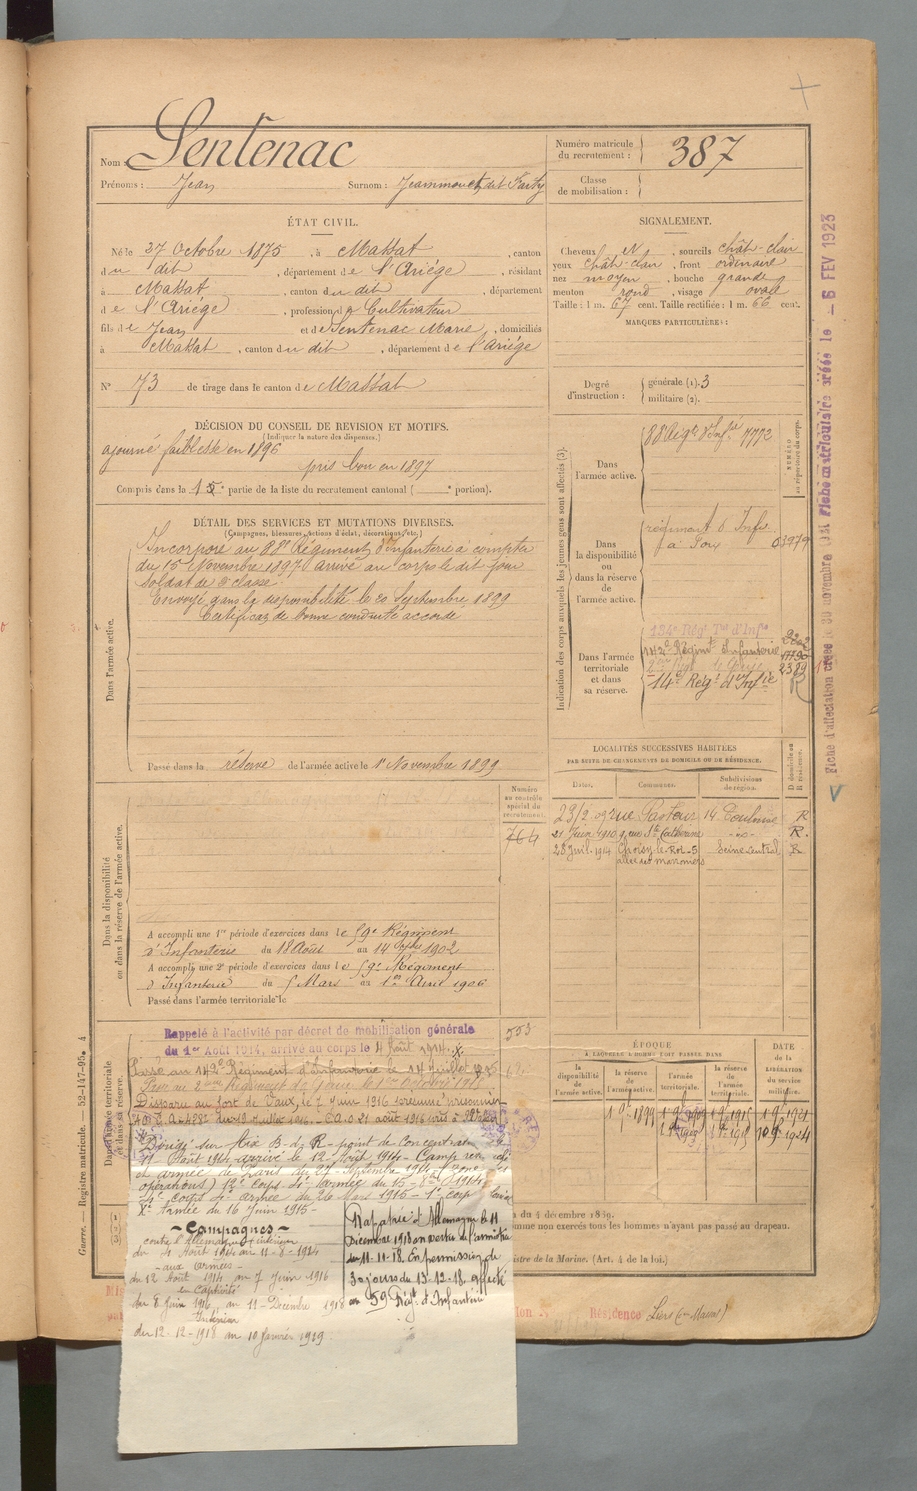 Nom : Sentenac
Prénoms : Jean Surnom : Jeammouet, dit Fasty
Numéro matricule du recrutement : 387
Classe de mobilisation :
ÉTAT CIVIL.
Né le 27 Octobre 1875, à Massat, canton
du dit, département de l'Ariège, résidant
à Massat, canton du dit, département
de l'Ariège, profession de Cultivateur
fils de Jean et de Sentenac Marie, domiciliés
à Massat, canton du dit, département de l'Ariège
N° 73 de tirage dans le canton de Massat
SIGNALEMENT.
Cheveux N, sourcils chât-clair
yeux chât-clair, front ordinaire
nez moyen, bouche grande
menton rond, visage ovale
Taille : 1 m. 67 cent. Taille rectifiée : 1 m. 66 cent.
MARQUES PARTICULIÈRES :
Degré d'instruction : générale (1). 3
militaire (2).
DÉCISION DU CONSEIL DE REVISION ET MOTIFS.
(Indiquer la nature des dispenses.)
ajourné faiblesse en 1896
pris bon en 1897
Compris dans la 1re partie de la liste du recrutement cantonal ( portion).
DÉTAIL DES SERVICES ET MUTATIONS DIVERSES.
(Campagnes, blessures, actions d'éclat, décorations, etc.)
Dans l'armée active.
Incorporé au 88e Régiment d'Infanterie à compter
du 15 Novembre 1897 Arrivé au corps le dit jour
soldat de 2e classe.
Envoyé dans la disponibilité le 20 Septembre 1899
Certificat de bonne conduite accordé
Passé dans la réserve de l'armée active le 1er Novembre 1899
Indication des corps auxquels les jeunes gens sont affectés (3).
NUMÉRO au répertoire du corps.
Dans l'armée active.
88 Régt d'Infie 7772
Dans la disponibilité ou dans la réserve de l'armée active.
régiment d'Infie
03979
Dans l'armée territoriale et dans sa réserve.
134e Régt Tal d'Infie
142e Régimt Infanterie
2389
14e Régt d'Infie
LOCALITÉS SUCCESSIVES HABITÉES
PAR SUITE DE CHANGEMENTS DE DOMICILE OU DE RÉSIDENCE.
Dates. Communes. Subdivisions de région. D domicile ou R résidence.
23/2 09 rue Pasteur 14 Toulouse R
21 Juin 1910 9, rue Ste Catherine -do- R.
28 Juil. 1914 Choisy-le-Roi - 5 allée des marronniers Seine Central R
Dans la disponibilité ou dans la réserve de l'armée active.
Numéro au contrôle spécial du recrutement.
764
A accompli une 1re période d'exercices dans le 59e Régiment
d'Infanterie du 18 Août au 14 7bre 1902
A accompli une 2e période d'exercices dans le 59e Régiment
d'Infanterie du 5 Mars au 1er Avril 1906
Passé dans l'armée territoriale le
Dans l'armée territoriale et dans sa réserve.
553
Rappelé à l'activité par décret de mobilisation générale
du 1er Août 1914, arrivé au corps le 4 Août 1914.
Passé au 142e Régiment d'Infanterie le 14 Juillet 1915
Passé au 2ème Régiment de Génie le 1er Octobre 1915
Disparu au fort de Vaux, le 7 Juin 1916 présumé prisonnier
Dirigé sur Aix B-d-R - point de concentration
Août 1914 arrivé le 12 Août 1914 - Camp re
et armée de Paris du 27 Septembre 1914
opérations) 12e corps 4e armée du 15 1914
4e corps 4e armée du 26 Mars 1915 - 1er corps
Xe Armée du 16 Juin 1915 -
- Campagnes -
contre l'Allemagne intérieur
du 4 Août 1914 au 11-8-1914
- aux armées -
du 12 Août 1914 au 7 Juin 1916
en captivité
du 8 Juin 1916 au 11 Décembre 1918
Intérieur
du 12-12-1918 au 10 Janvier 1919
Rapatrié d'Allemagne le 11
Décembre 1918 en vertu de l'armistice
du 11-11-18. En permission de
30 jours du 13-12-18. affecté
au 59 Régt d'Infanterie
ÉPOQUE
À LAQUELLE L'HOMME DOIT PASSER DANS
la disponibilité de l'armée active. la réserve de l'armée active. l'armée territoriale. la réserve de l'armée territoriale. DATE de la LIBÉRATION du service militaire.
du 4 décembre 1889.
mme non exercés tous les hommes n'ayant pas passé au drapeau.
istre de la Marine. (Art. 4 de la loi.)
Résidence Liers
Guerre. — Registre matricule. — 52-147-95. 4
Fiche d'affectation créée le 30 novembre
Fiche matriculaire créée le - 6 FEV 1923